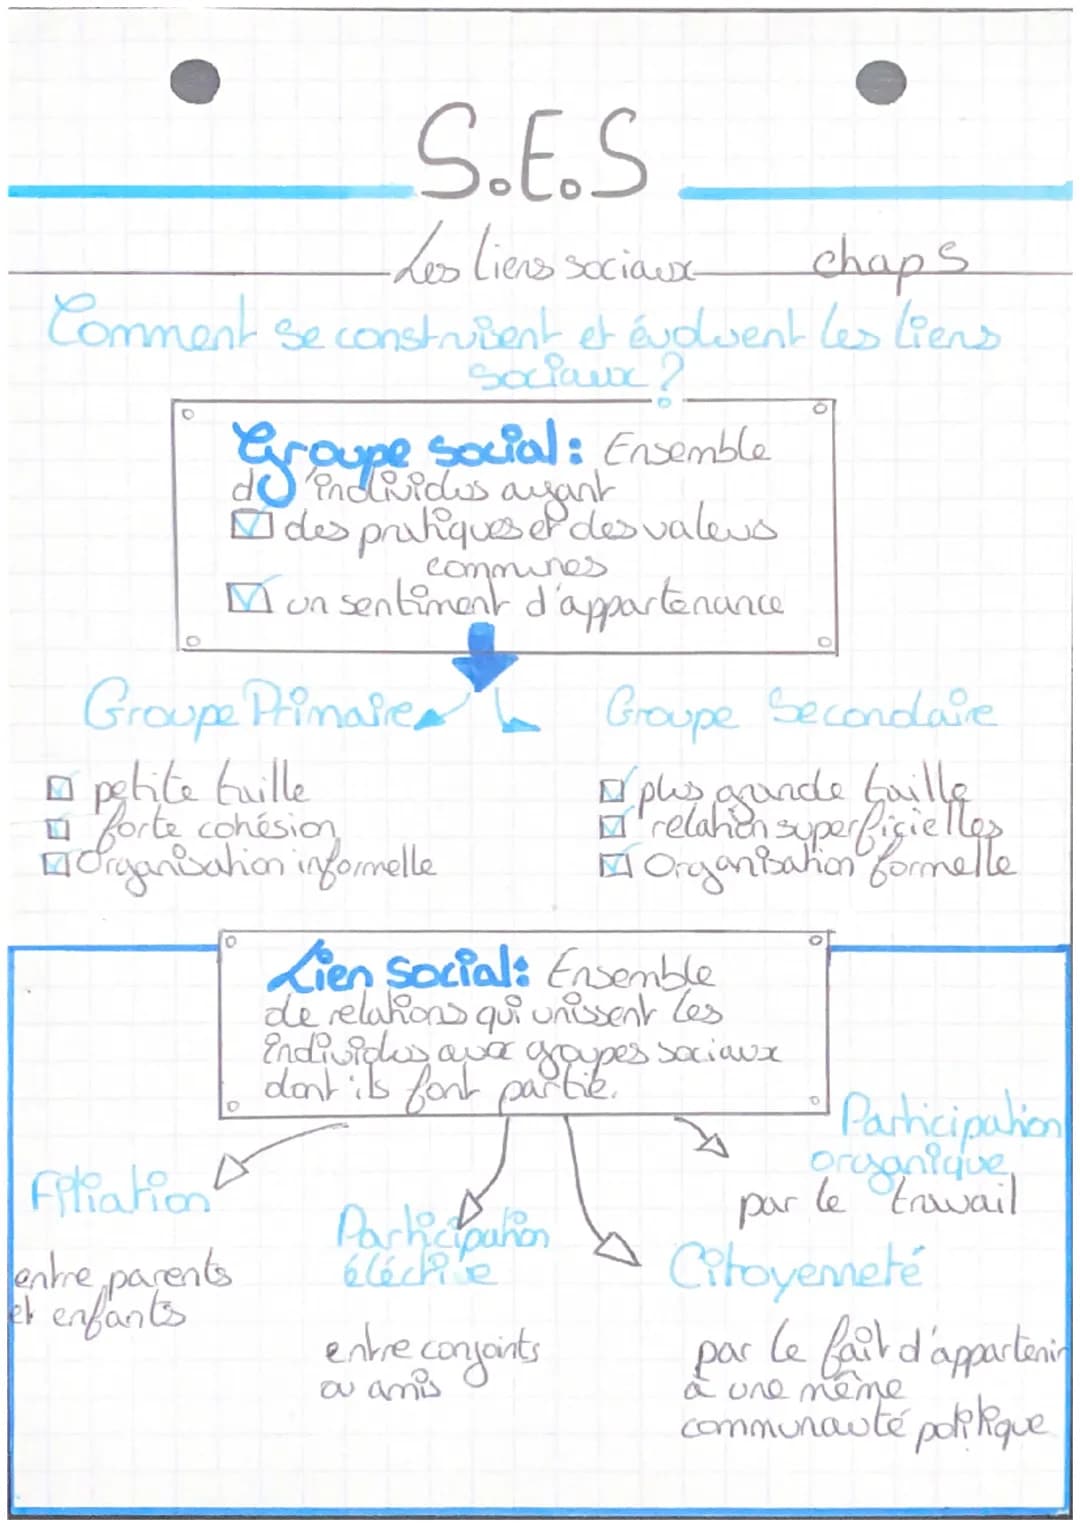 S.E.S
Les liens sociaux
chap 5
Comment se construisent et évoluent les liens
sociaux ?
Groupe social : Ensemble
d'individus ayant
des pratiques et des valeurs
communes
un sentiment d'appartenance
Groupe Primaire
Groupe Secondaire
petite taille
forte cohésion
Organisation informelle
plus grande taille
relation superficielles
Organisation formelle
Lien social : Ensemble
de relations qui unissent les
individus aux groupes sociaux
dont ils font partie.
Filiation
entre parents
et enfants
Participation
éléctive
entre conjoints
ou amis
Citoyenneté
par le fait d'appartenir
à une même
communauté politique
Participation
organique
par le travail